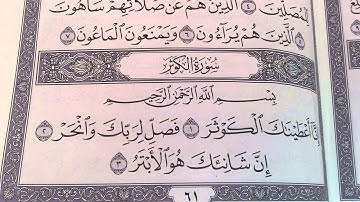 لِّلْمُصَلِّينَ ٤ ٱلَّذِينَ هُمْ عَن صَلَاتِهِمْ سَاهُونَ
٥ ٱلَّذِينَ هُمْ يُرَآءُونَ ٦ وَيَمْنَعُونَ ٱلْمَاعُونَ ٧
سُورَةُ الكَوْثَر
بِسْمِ ٱللَّهِ ٱلرَّحْمَٰنِ ٱلرَّحِيمِ
إِنَّآ أَعْطَيْنَٰكَ ٱلْكَوْثَرَ ١ فَصَلِّ لِرَبِّكَ وَٱنْحَرْ ٢
إِنَّ شَانِئَكَ هُوَ ٱلْأَبْتَرُ ٣
٦١